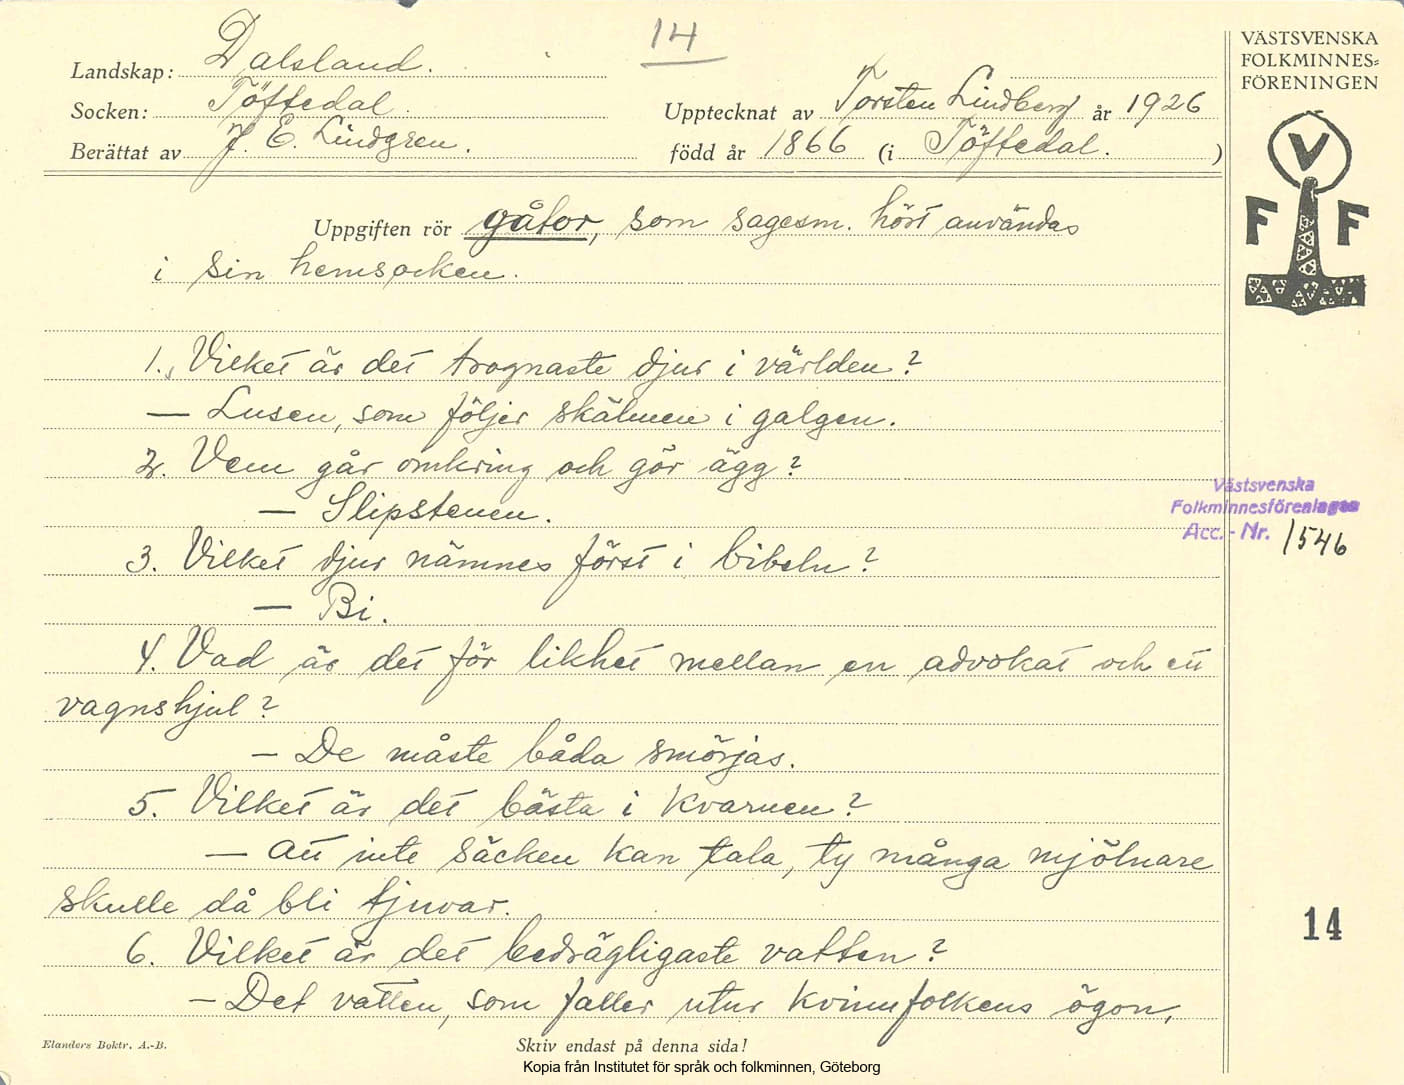 14
Landskap: Dalsland.
Socken: Töftedal.
Upptecknat av Torsten Lindberg år 1926
Berättat av J. E. Lindgren.
född år 1866 (i Töftedal.)
VÄSTSVENSKA
FOLKMINNES-
FÖRENINGEN
V
F F
Uppgiften rör gåtor, som sagesm. hört användas
i sin hemsocken.
1. Vilket är det trognaste djur i världen?
— Lusen, som följer skälmen i galgen.
2. Vem går omkring och gör ägg?
— Slipstenen.
Västsvenska
Folkminnesföreningen
Acc.-Nr. 1546
3. Vilket djur nämnes först i bibeln?
— Bi.
4. Vad är det för likhet mellan en advokat och ett
vagnshjul?
— De måste båda smörjas.
5. Vilket är det bästa i kvarnen?
— att inte säcken kan tala, ty många mjölnare
skulle då bli tjuvar.
6. Vilket är det bedrägligaste vatten?
— Det vatten, som faller utur kvinnfolkens ögon.
14
Elanders Boktr. A.-B.
Skriv endast på denna sida!
Kopia från Institutet för språk och folkminnen, Göteborg